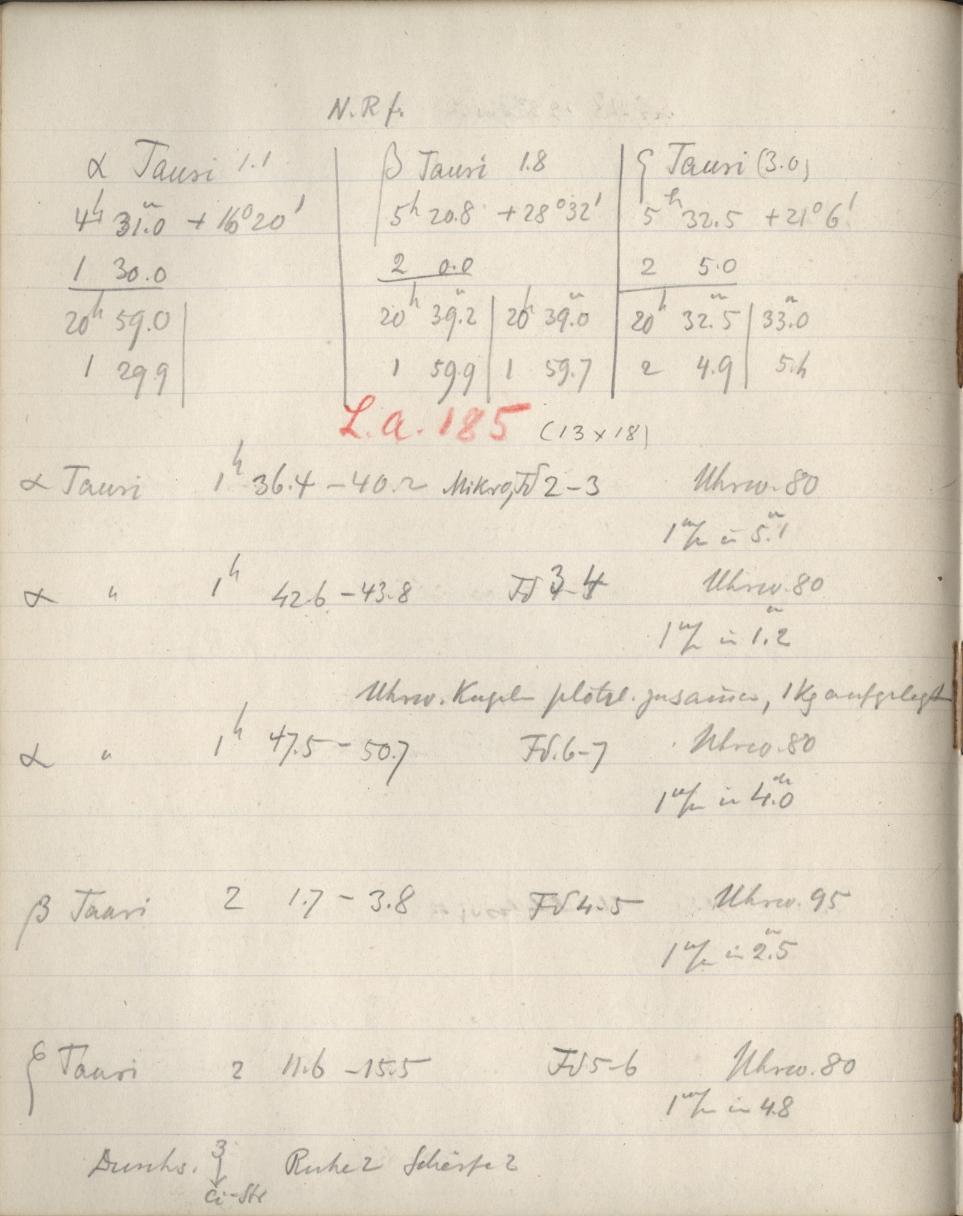 N.R f.
α Tauri 1.1 β Tauri 1.8 ζ Tauri (3.0)
4h 31.0m + 16°20' 5h 20.8 + 28°32' 5h 32.5 + 21°6'
1 30.0 2 0.0 2 5.0
20h 59.0 20h 39.2m 20h 39.0m 20h 32.5m 33.0m
1 29.9 1 59.9 1 59.7 2 4.9 5.4
L.a. 185 (13 x 18)
α Tauri 1h 36.4 – 40.2 Mikro, Fd 2–3 Uhrw. 80
1 m/m in 5.1m
α " 1h 42.6 – 43.8 Fd 3–4 Uhrw. 80
1 m/m in 1.2m
Uhrw. Kugeln plötzl. zusammen, 1 Kg aufgelegt
α " 1h 47.5 – 50.7 Fd. 6–7 Uhrw. 80
1 m/m in 4.0m
β Tauri 2 1.7 – 3.8 Fd 4–5 Uhrw. 95
1 m/m in 2.5m
ζ Tauri 2 11.6 – 15.5 Fd 5–6 Uhrw. 80
1 m/m in 4.8
Durchs. 3 Ruhe 2 Schärfe 2
Ci-Str